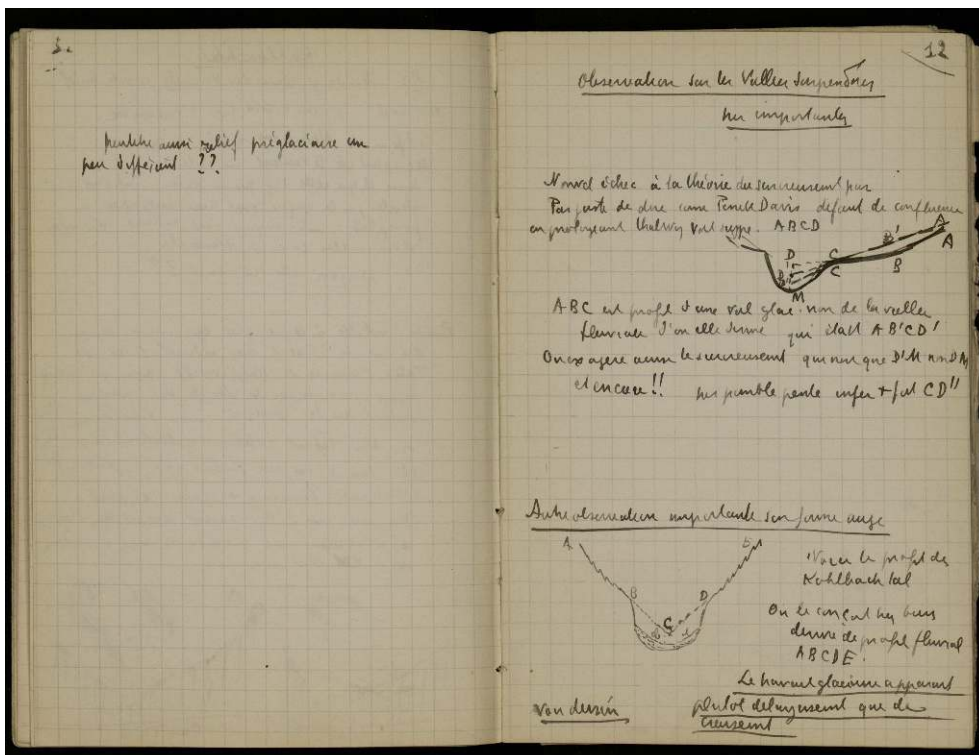 3.
peutetre aussi relief préglaciaire un
peu différent ??
12
Observation sur les Vallees suspendues
tres importantes
Nouvel échec à la théorie du surcreusement par
Pas juste de dire comme Penck Davis defaut de confluence
en prolongeant thalweg vall susp. ABCD
D C B' A
C B A
M
ABC est profil d'une val glac. non de la vallee
fluviale d'où elle derive qui était AB'CD'
On exagere aussi le surcreusement qui n'est que D'M non DM
et encore!! tres possible pente infer + fort CD''
Autre observation importante sur forme auge
A E
B D
C
Voici le profil du
Kohlbachtal
On le conçoit tres bien
derivé de profil fluvial
ABCDE.
Le travail glaciaire apparait
plutot elargissement que de
creusement
Voir dessin